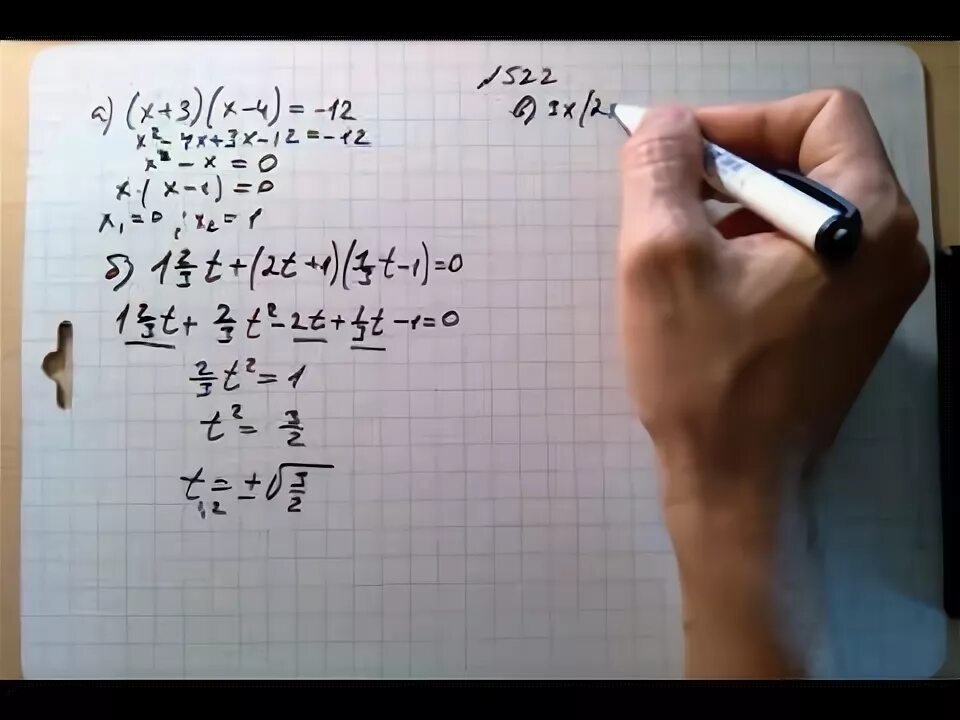 а) (x+3)(x-4) = -12
x² - 4x+3x-12 = -12
x² - x = 0
x·(x-1) = 0
x₁=0 ; x₂=1
б) 1 2/3 t + (2t+1)(1/3 t-1)=0
1 2/3 t + 2/3 t² - 2t + 1/3 t - 1 = 0
2/3 t² = 1
t² = 3/2
t₁,₂ = ±√3/2
№522
в) 3x(2